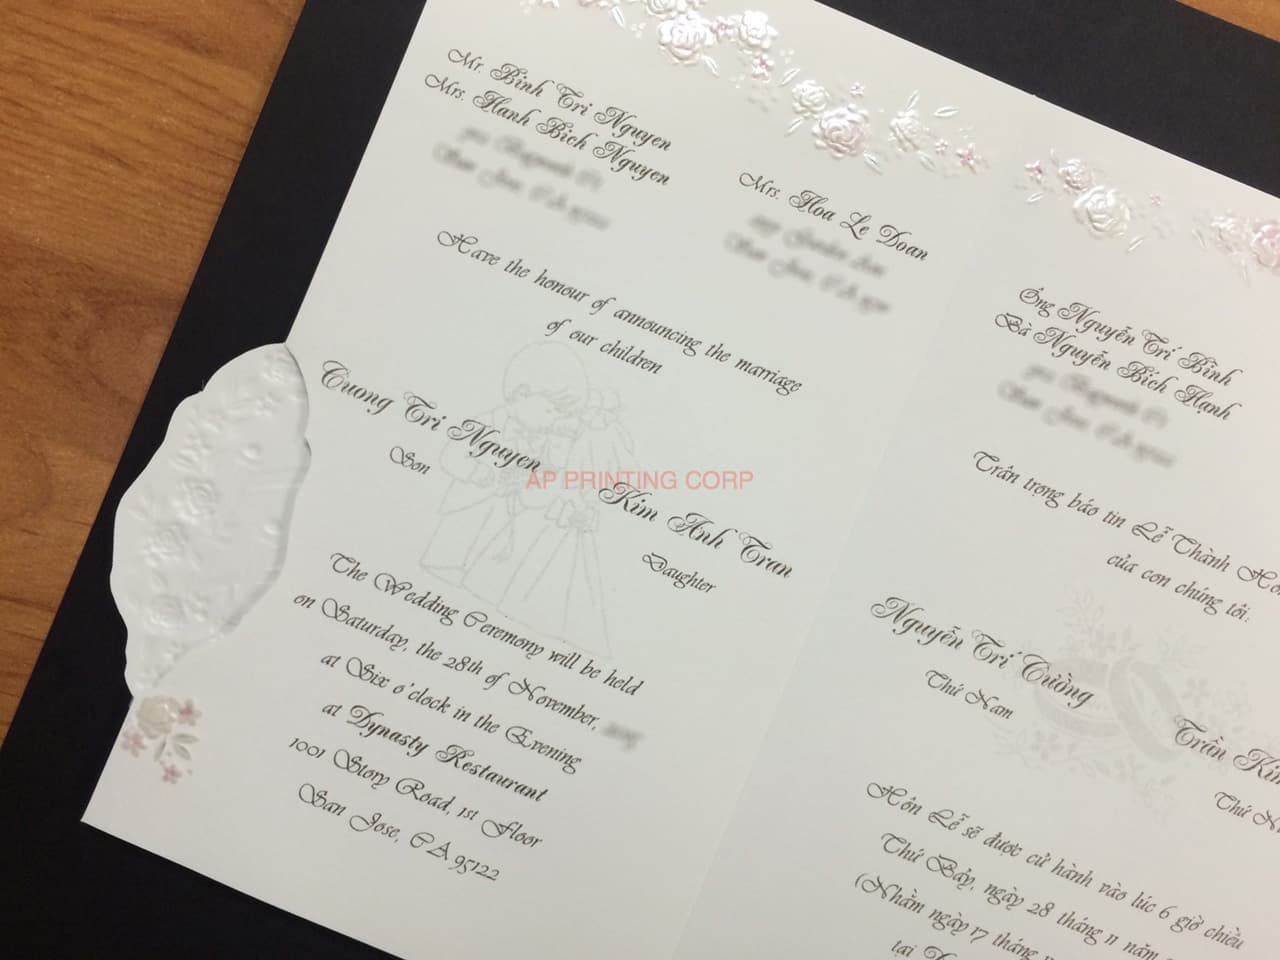 Mr. Binh Tri Nguyen
Mrs. Hanh Bich Nguyen
Mrs. Hoa Le Doan
Have the honour of announcing the marriage
of our children
Cuong Tri Nguyen
Son
AP PRINTING CORP
Kim Anh Tran
Daughter
The Wedding Ceremony will be held
on Saturday, the 28th of November,
at Six o'clock in the Evening
at Dynasty Restaurant
1001 Story Road, 1st Floor
San Jose, CA 95122
Ông Nguyễn Trí Bình
Bà Nguyễn Bích Hạnh
Trân trọng báo tin Lễ Thành
của con chúng tôi:
Nguyễn Trí Cường
Thứ Nam
Trần
Thứ
Hôn Lễ sẽ được cử hành vào lúc 6 giờ chiều
Thứ Bảy, ngày 28 tháng 11 năm
(Nhằm ngày 17 tháng
tại